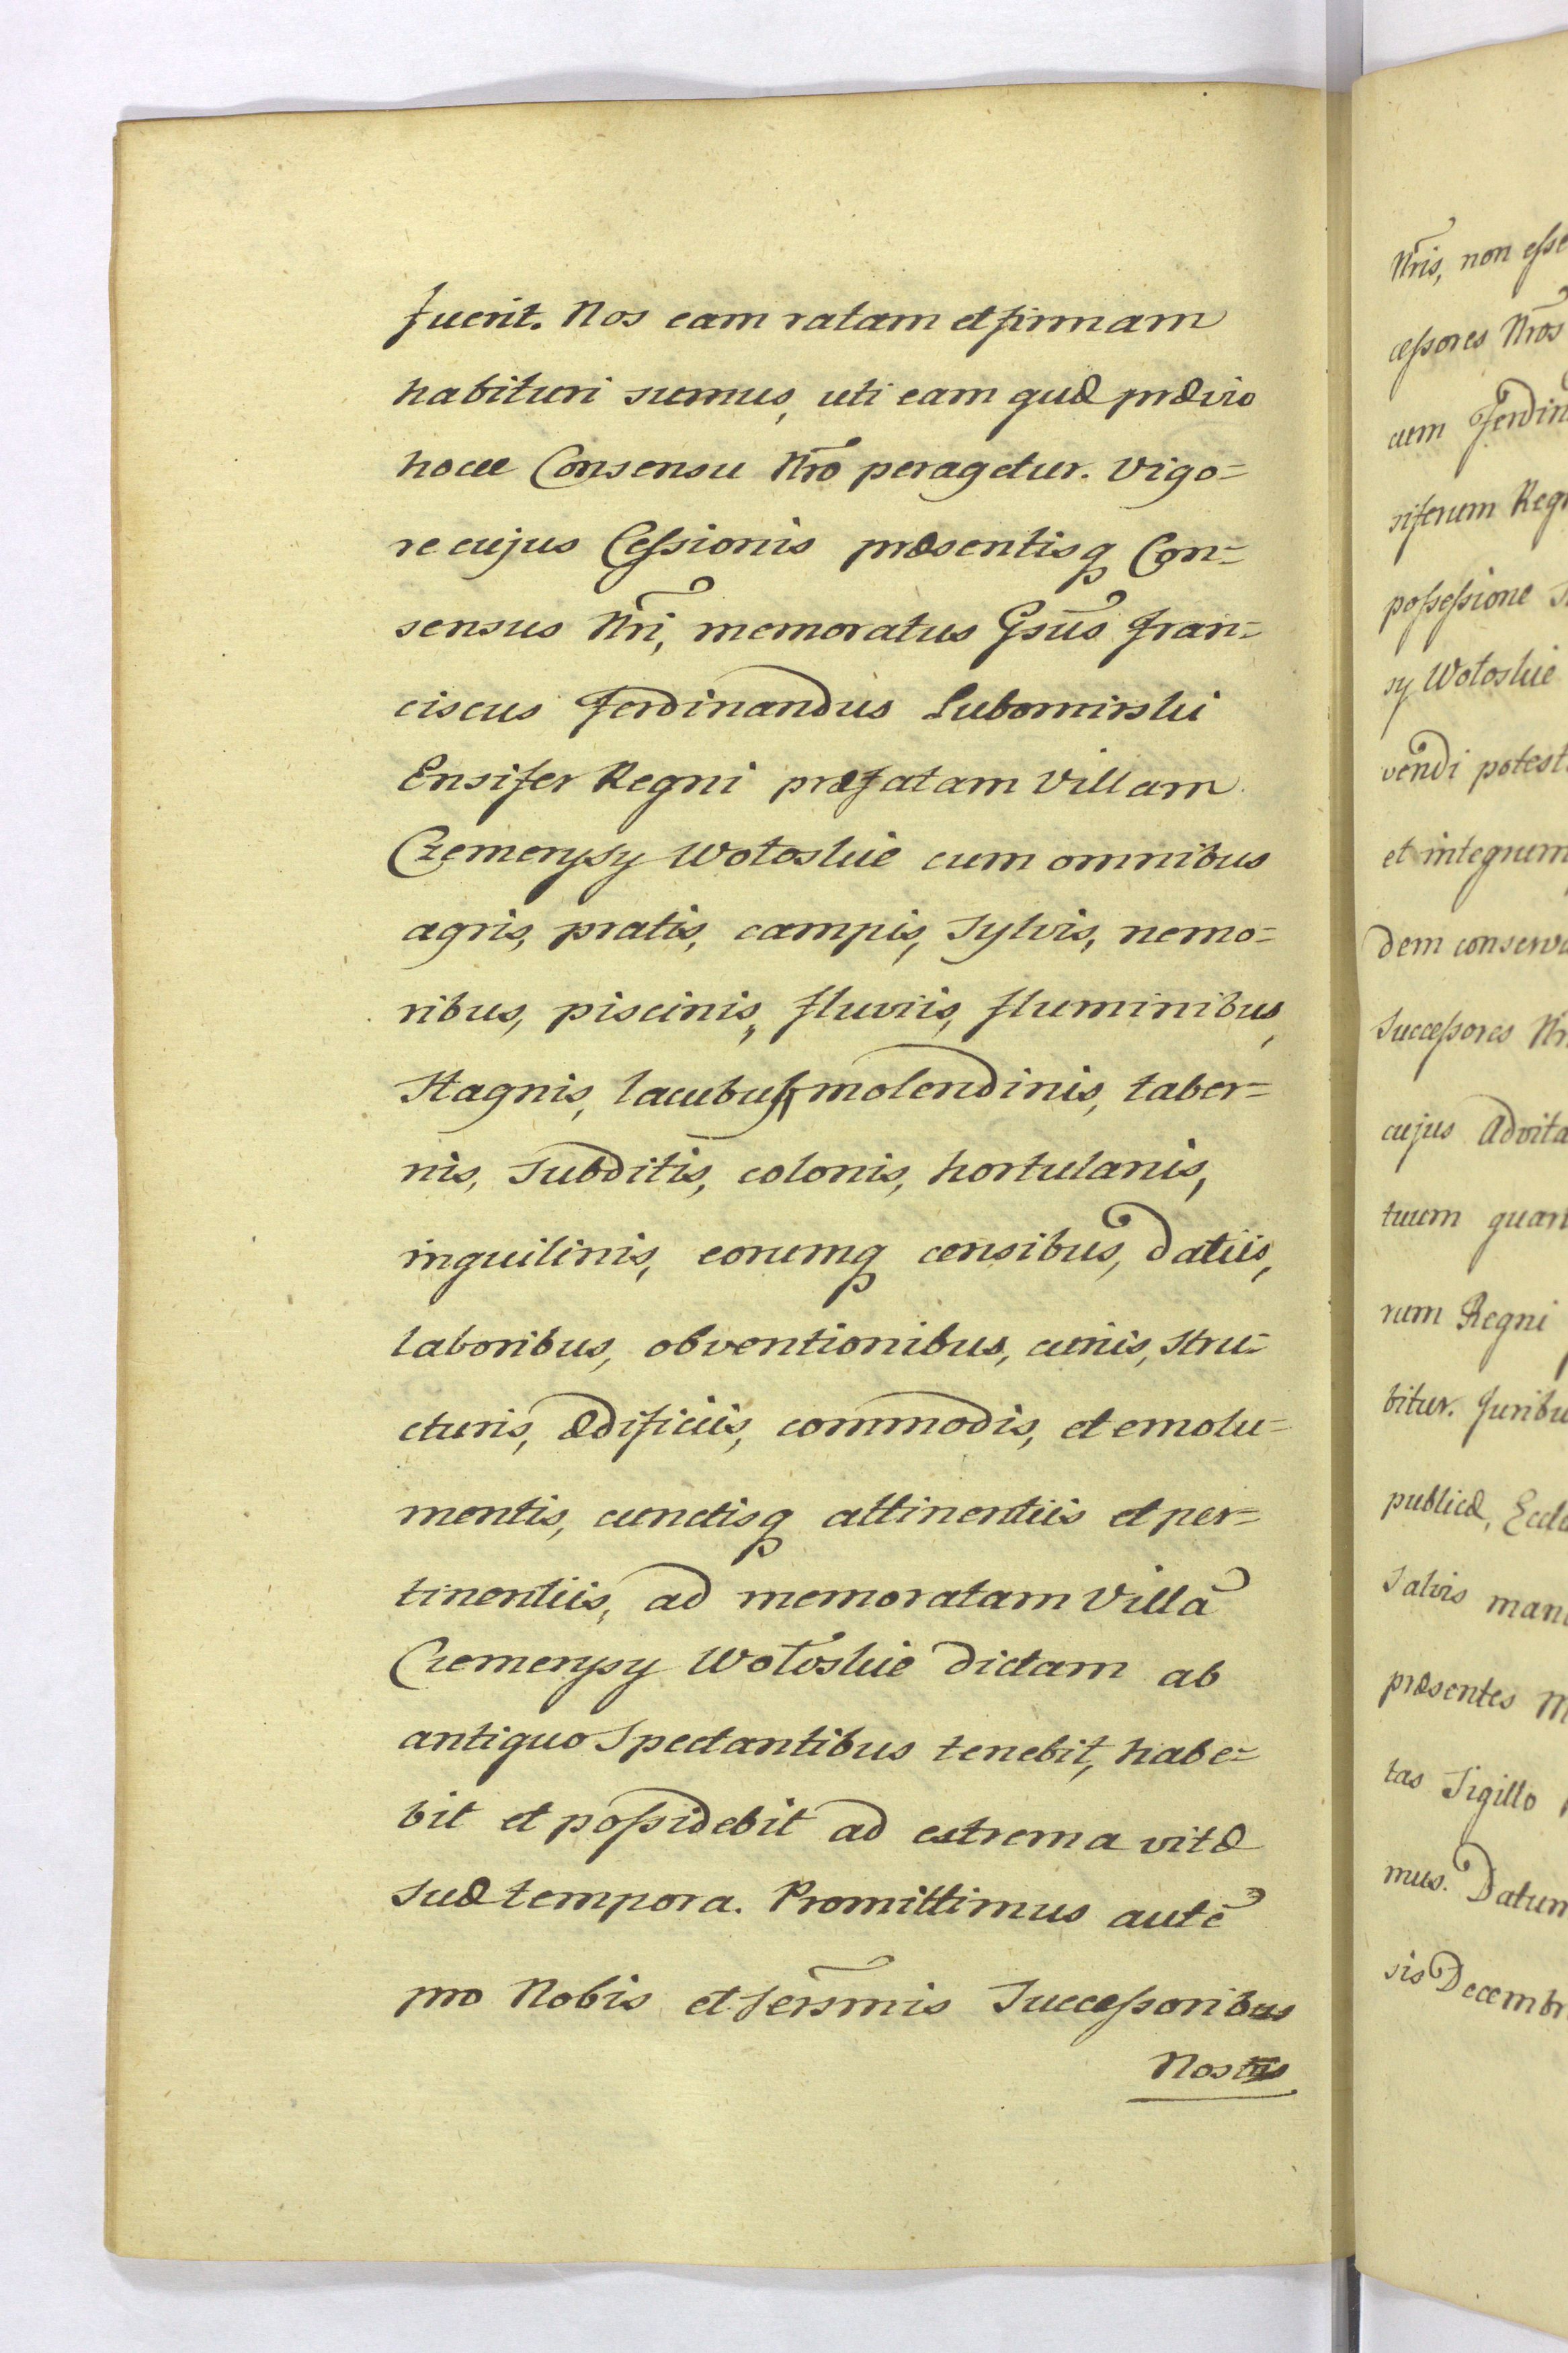 fuerit. Nos eam ratam et firmam
habituri sumus, uti eam quæ prævio
hocce Consensu Nr̃o peragetur. Vigo=
re cujus Cessionis præsentisq Con=
sensus Nr̃i, memoratus Gsũs Fran=
ciscus Ferdinandus Lubomirski
Ensifer Regni præfatam Villam
Czemerysy Wołoskie cum omnibus
agris, pratis, campis, Sylvis, nemo=
ribus, piscinis, fluviis, fluminibus,
Stagnis, lacubus, molendinis, taber=
nis, Subditis, colonis, hortulanis,
inquilinis, eorumq censibus, datiis,
laboribus, obventionibus, curiis, stru=
cturis, ædificiis, commodis, et emolu=
mentis, cunctisq attinentiis et per=
tinentiis, ad memoratam Villã
Czemerysy Wołoskie dictam ab
antiquo Spectantibus tenebit, habe=
bit et possidebit ad extrema vitæ
suæ tempora. Promittimus autẽ
pro Nobis et Sersm̃is Successoribus
Nostris
Nr̃is, non esse
cessores Nr̃os
cum Ferdin
siferum Reg
possessione
sy Wołoskie
vendi potest
et integrum
dem conserva
Successores Nr
cujus Advita
tuum quan
rum Regni
bitur. Juribu
publicæ, Eccle
Salvis man
præsentes M
tas Sigillo
mus. Datum
sis Decembr